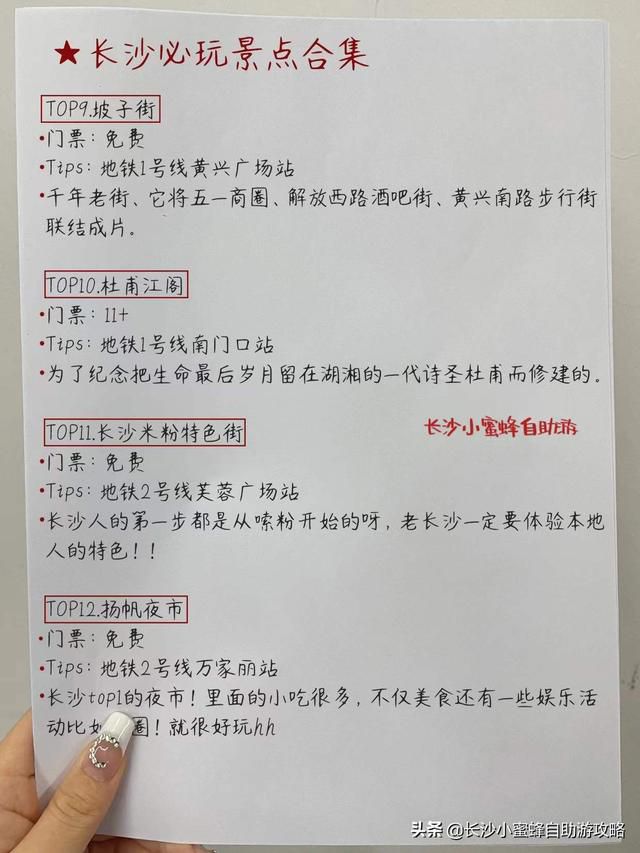 ★长沙必玩景点合集
TOP9.坡子街
•门票：免费
•Tips：地铁1号线黄兴广场站
•千年老街、它将五一商圈、解放西路酒吧街、黄兴南路步行街
联结成片。
TOP10.杜甫江阁
•门票：11+
•Tips：地铁1号线南门口站
•为了纪念把生命最后岁月留在湖湘的一代诗圣杜甫而修建的。
TOP11.长沙米粉特色街
长沙小蜜蜂自助游
•门票：免费
•Tips：地铁2号线芙蓉广场站
•长沙人的第一步都是从嗦粉开始的呀，老长沙一定要体验本地
人的特色！！
TOP12.扬帆夜市
•门票：免费
•Tips：地铁2号线万家丽站
•长沙top1的夜市！里面的小吃很多，不仅美食还有一些娱乐活
动比如圈！就很好玩hh
头条@长沙小蜜蜂自助游攻略